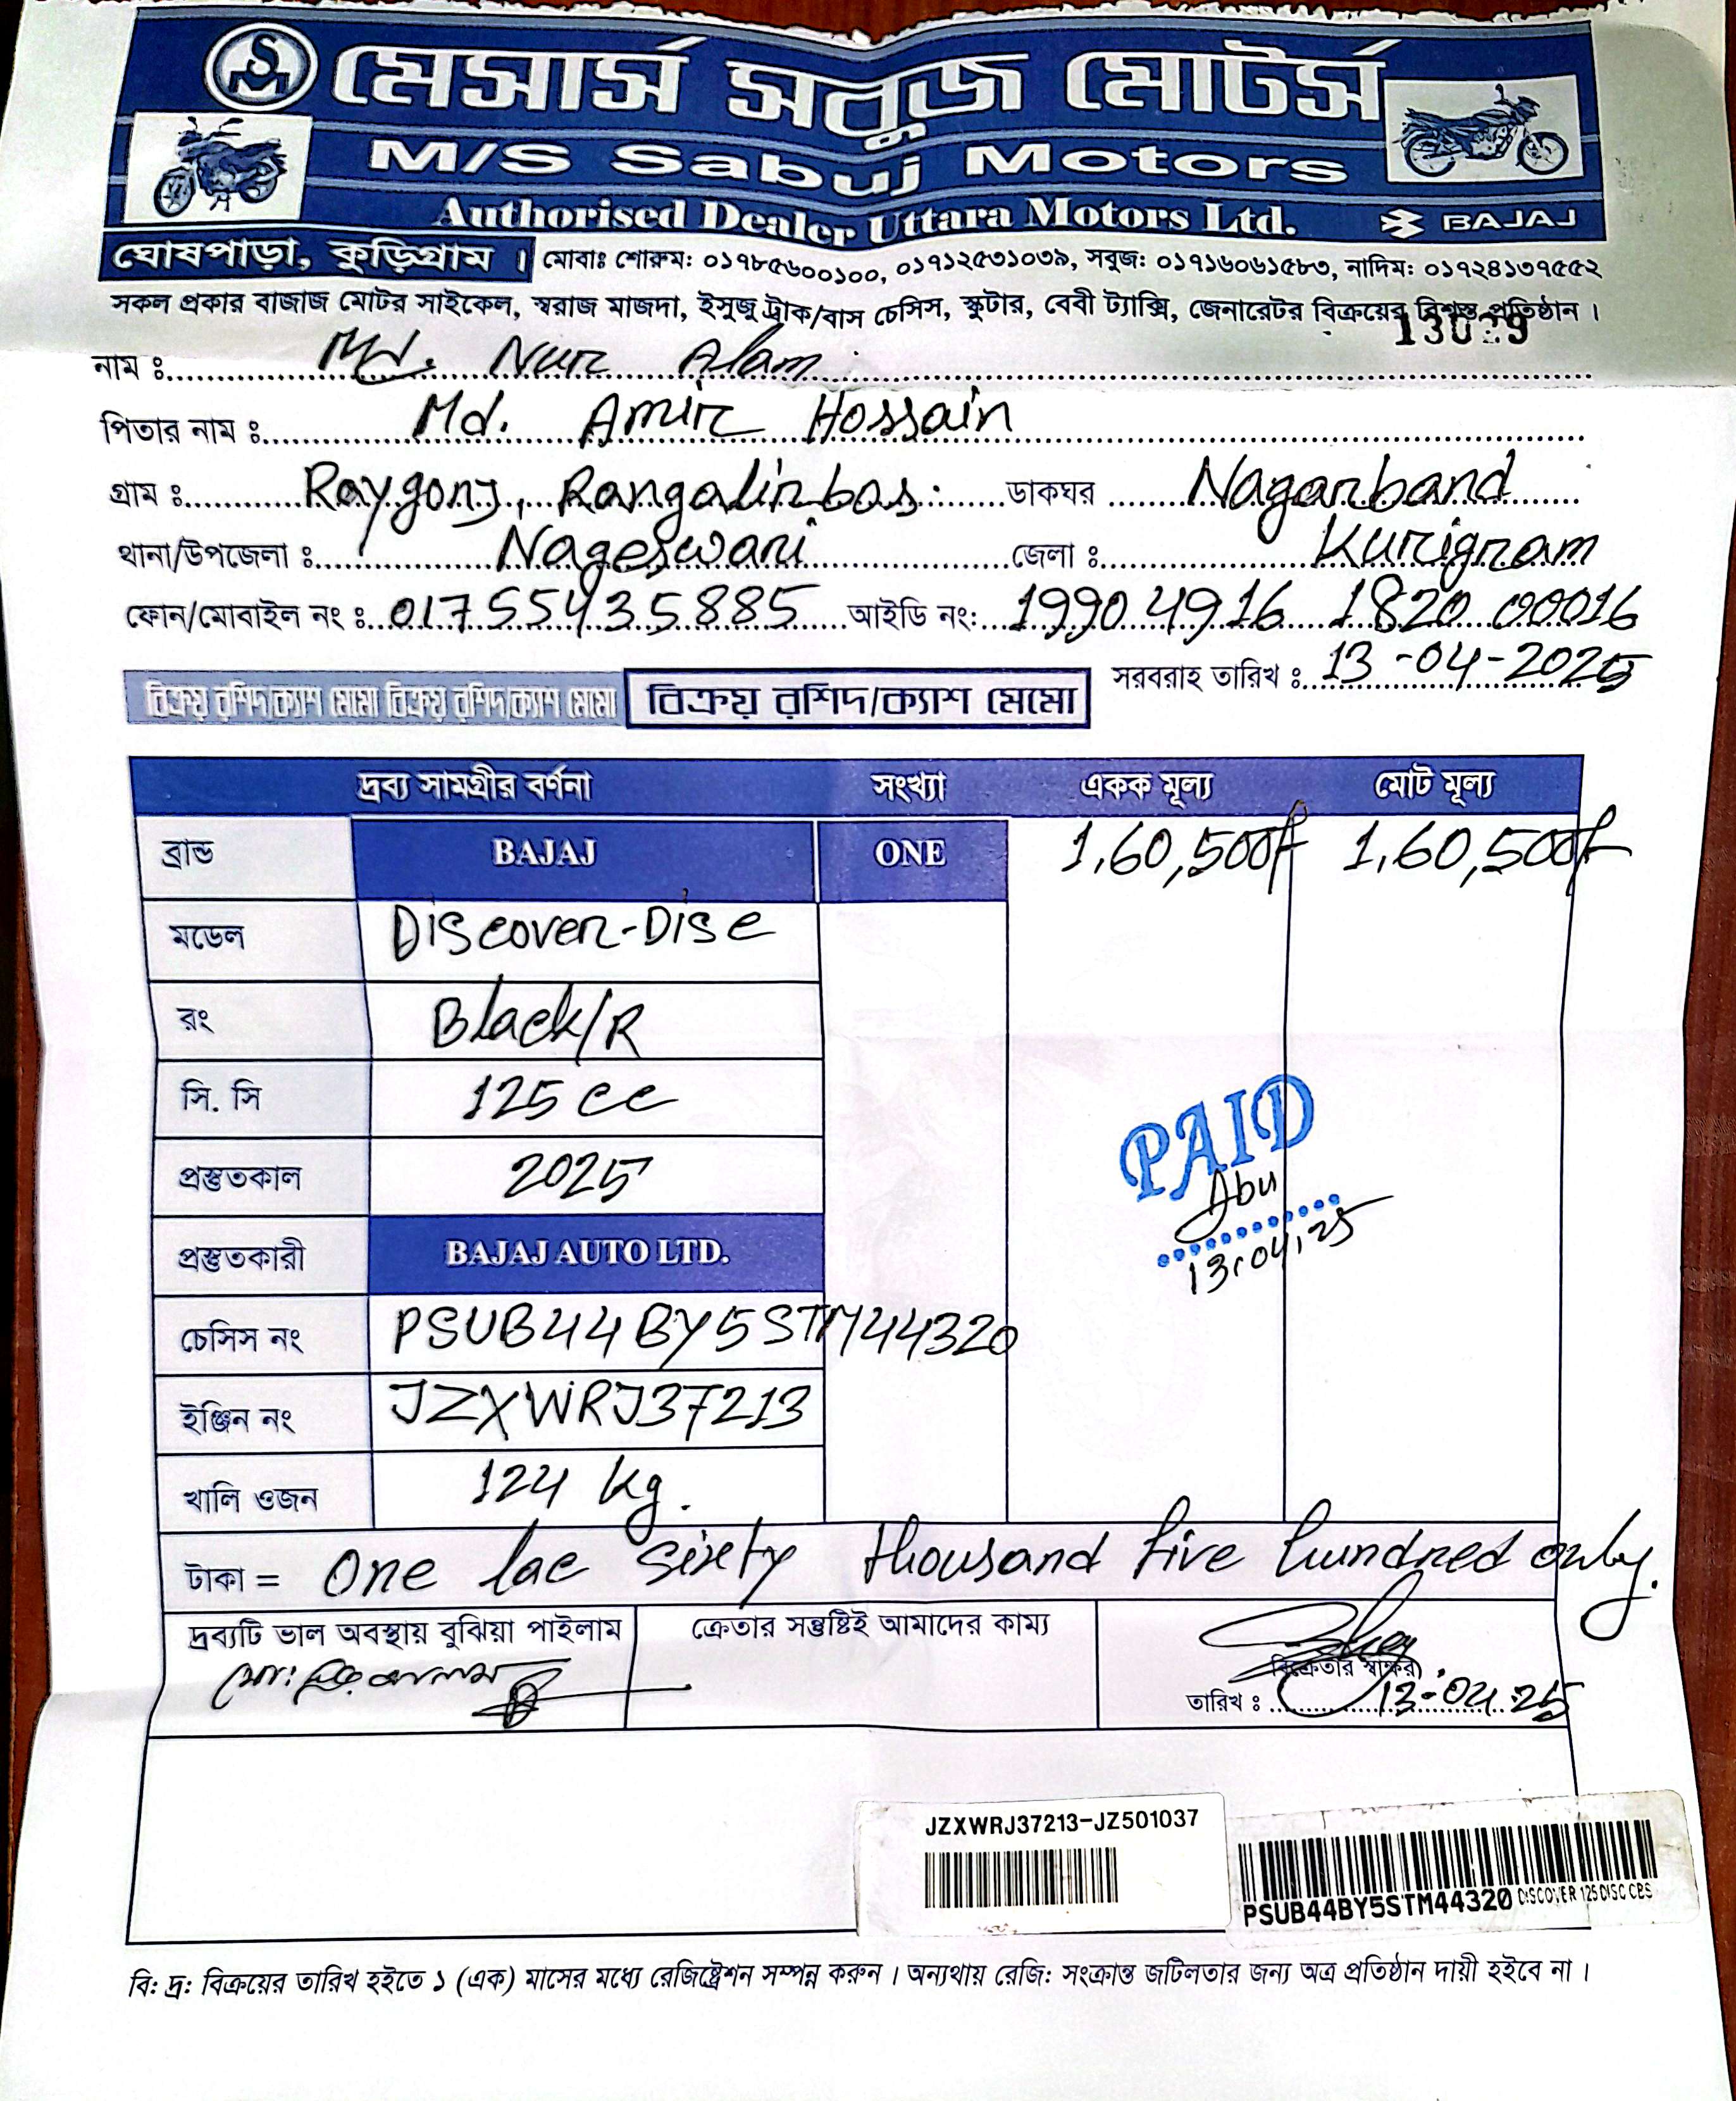 SM মেসার্স সবুজ মোটর্স
M/S Sabuj Motors
Authorised Dealer Uttara Motors Ltd. BAJAJ
ঘোষপাড়া, কুড়িগ্রাম। মোবাঃ শোরুম: ০১৭৮৫৬০০১০০, ০১৭১২৫৩১০৩৯, সবুজ: ০১৭১৬০৬১৫৮৩, নাদিম: ০১৭২৪১৩৭৫৫২
সকল প্রকার বাজাজ মোটর সাইকেল, স্বরাজ মাজদা, ইসুজু ট্রাক/বাস চেসিস, স্কুটার, বেবী ট্যাক্সি, জেনারেটর বিক্রয়ের বিশ্বস্ত প্রতিষ্ঠান।
নাম ঃ Md. Nur Alam
পিতার নাম ঃ Md. Amir Hossain
গ্রাম ঃ Raygonj, Rangalirbas ডাকঘর Naganband
থানা/উপজেলা ঃ Nageswari জেলা ঃ Kurigram
ফোন/মোবাইল নং ঃ 01755435885 আইডি নং: 19904916 1820 00016
সরবরাহ তারিখ ঃ 13-04-2025
বিক্রয় রশিদ/ক্যাশ মেমো বিক্রয় রশিদ/ক্যাশ মেমো বিক্রয় রশিদ/ক্যাশ মেমো
দ্রব্য সামগ্রীর বর্ণনা সংখ্যা একক মূল্য মোট মূল্য
ব্রান্ড BAJAJ ONE 1,60,500/- 1,60,500/-
মডেল Discover-Disc
রং Black/R
সি. সি 125 cc
প্রস্তুতকাল 2025
PAID
Abu
13.04.25
প্রস্তুতকারী BAJAJ AUTO LTD.
চেসিস নং PSUB44BY5STM44320
ইঞ্জিন নং JZXWRJ37213
খালি ওজন 124 kg.
টাকা = One lac sixty thousand five hundred only.
দ্রব্যটি ভাল অবস্থায় বুঝিয়া পাইলাম ক্রেতার সন্তুষ্টিই আমাদের কাম্য
বিক্রেতার স্বাক্ষর
তারিখ ঃ 13.04.25
JZXWRJ37213-JZ501037
PSUB44BY5STM44320 DISCOVER 125 DISC CBS
বি: দ্র: বিক্রয়ের তারিখ হইতে ১ (এক) মাসের মধ্যে রেজিষ্ট্রেশন সম্পন্ন করুন। অন্যথায় রেজি: সংক্রান্ত জটিলতার জন্য অত্র প্রতিষ্ঠান দায়ী হইবে না।